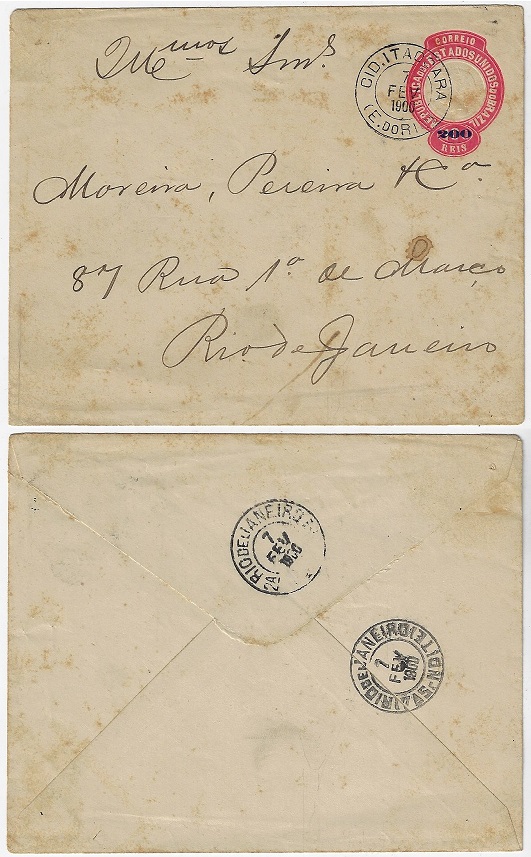 Mmos Snrs
CID. ITAOCARA
7
FEV
1900
(E. DO RIO)
CORREIO
REPUBLICA DOS ESTADOS UNIDOS DO BRAZIL
200
REIS
Moreira, Pereira & Ca
87 Rua 1º de Março
Rio de Janeiro
RIO DE JANEIRO
2A
7
FEV
1900
RIO DE JANEIRO
7
FEV
1900